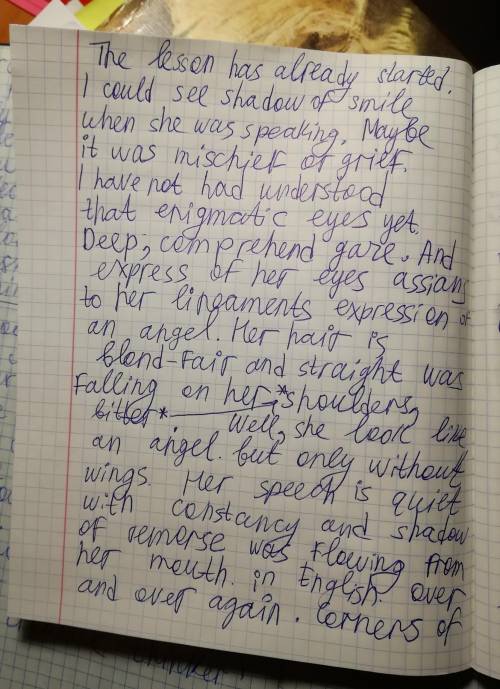 The lesson has already started.
I could see shadow of smile
when she was speaking. Maybe
it was mischief or grief.
I have not had understood
that enigmatic eyes yet.
Deep, comprehend gaze. And
express of her eyes assians
to her lingaments expression of
an angel. Her hair is
blond-Fair and straight was
Falling on her *shoulders,
bitter*
Well, she look like
an angel. but only without
wings. Her speech is quiet
with constancy and shadow
of remorse was Flowing From
her mouth. in English. over
and over again. Corners of